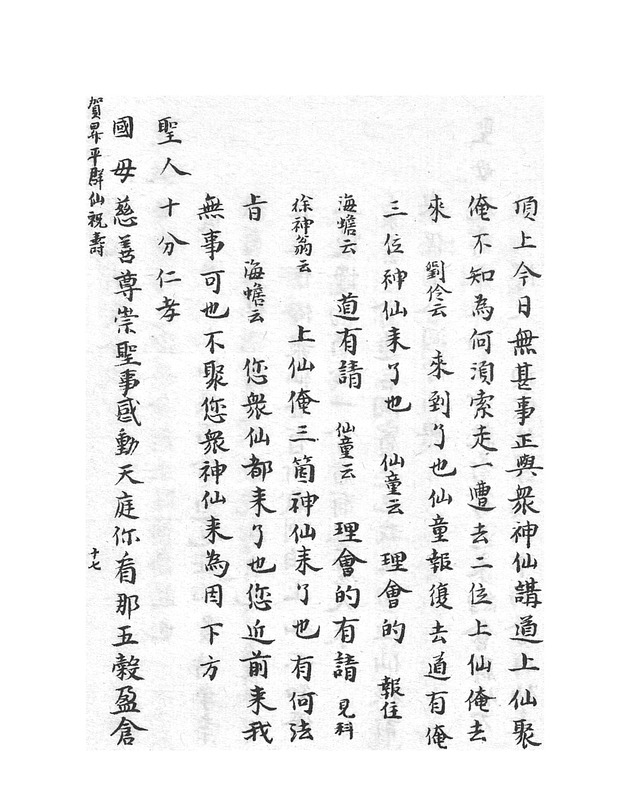 頂上今日無甚事正與衆神仙講道上仙聚
俺不知為何須索走一遭去二位上仙俺去
來 劉伶云 來到了也仙童報復去道有俺
三位神仙来了也 仙童云 理會的 報住
海蟾云 道有請 仙童云 理會的有請 見科
徐神翁云 上仙俺三箇神仙来了也有何法
旨 海蟾云 您衆仙都来了也您近前来我
無事可也不聚您衆神仙来為因下方
聖人十分仁孝
國母慈善尊崇聖事感動天庭你看那五穀盈倉
賀昇平群仙祝壽 十七